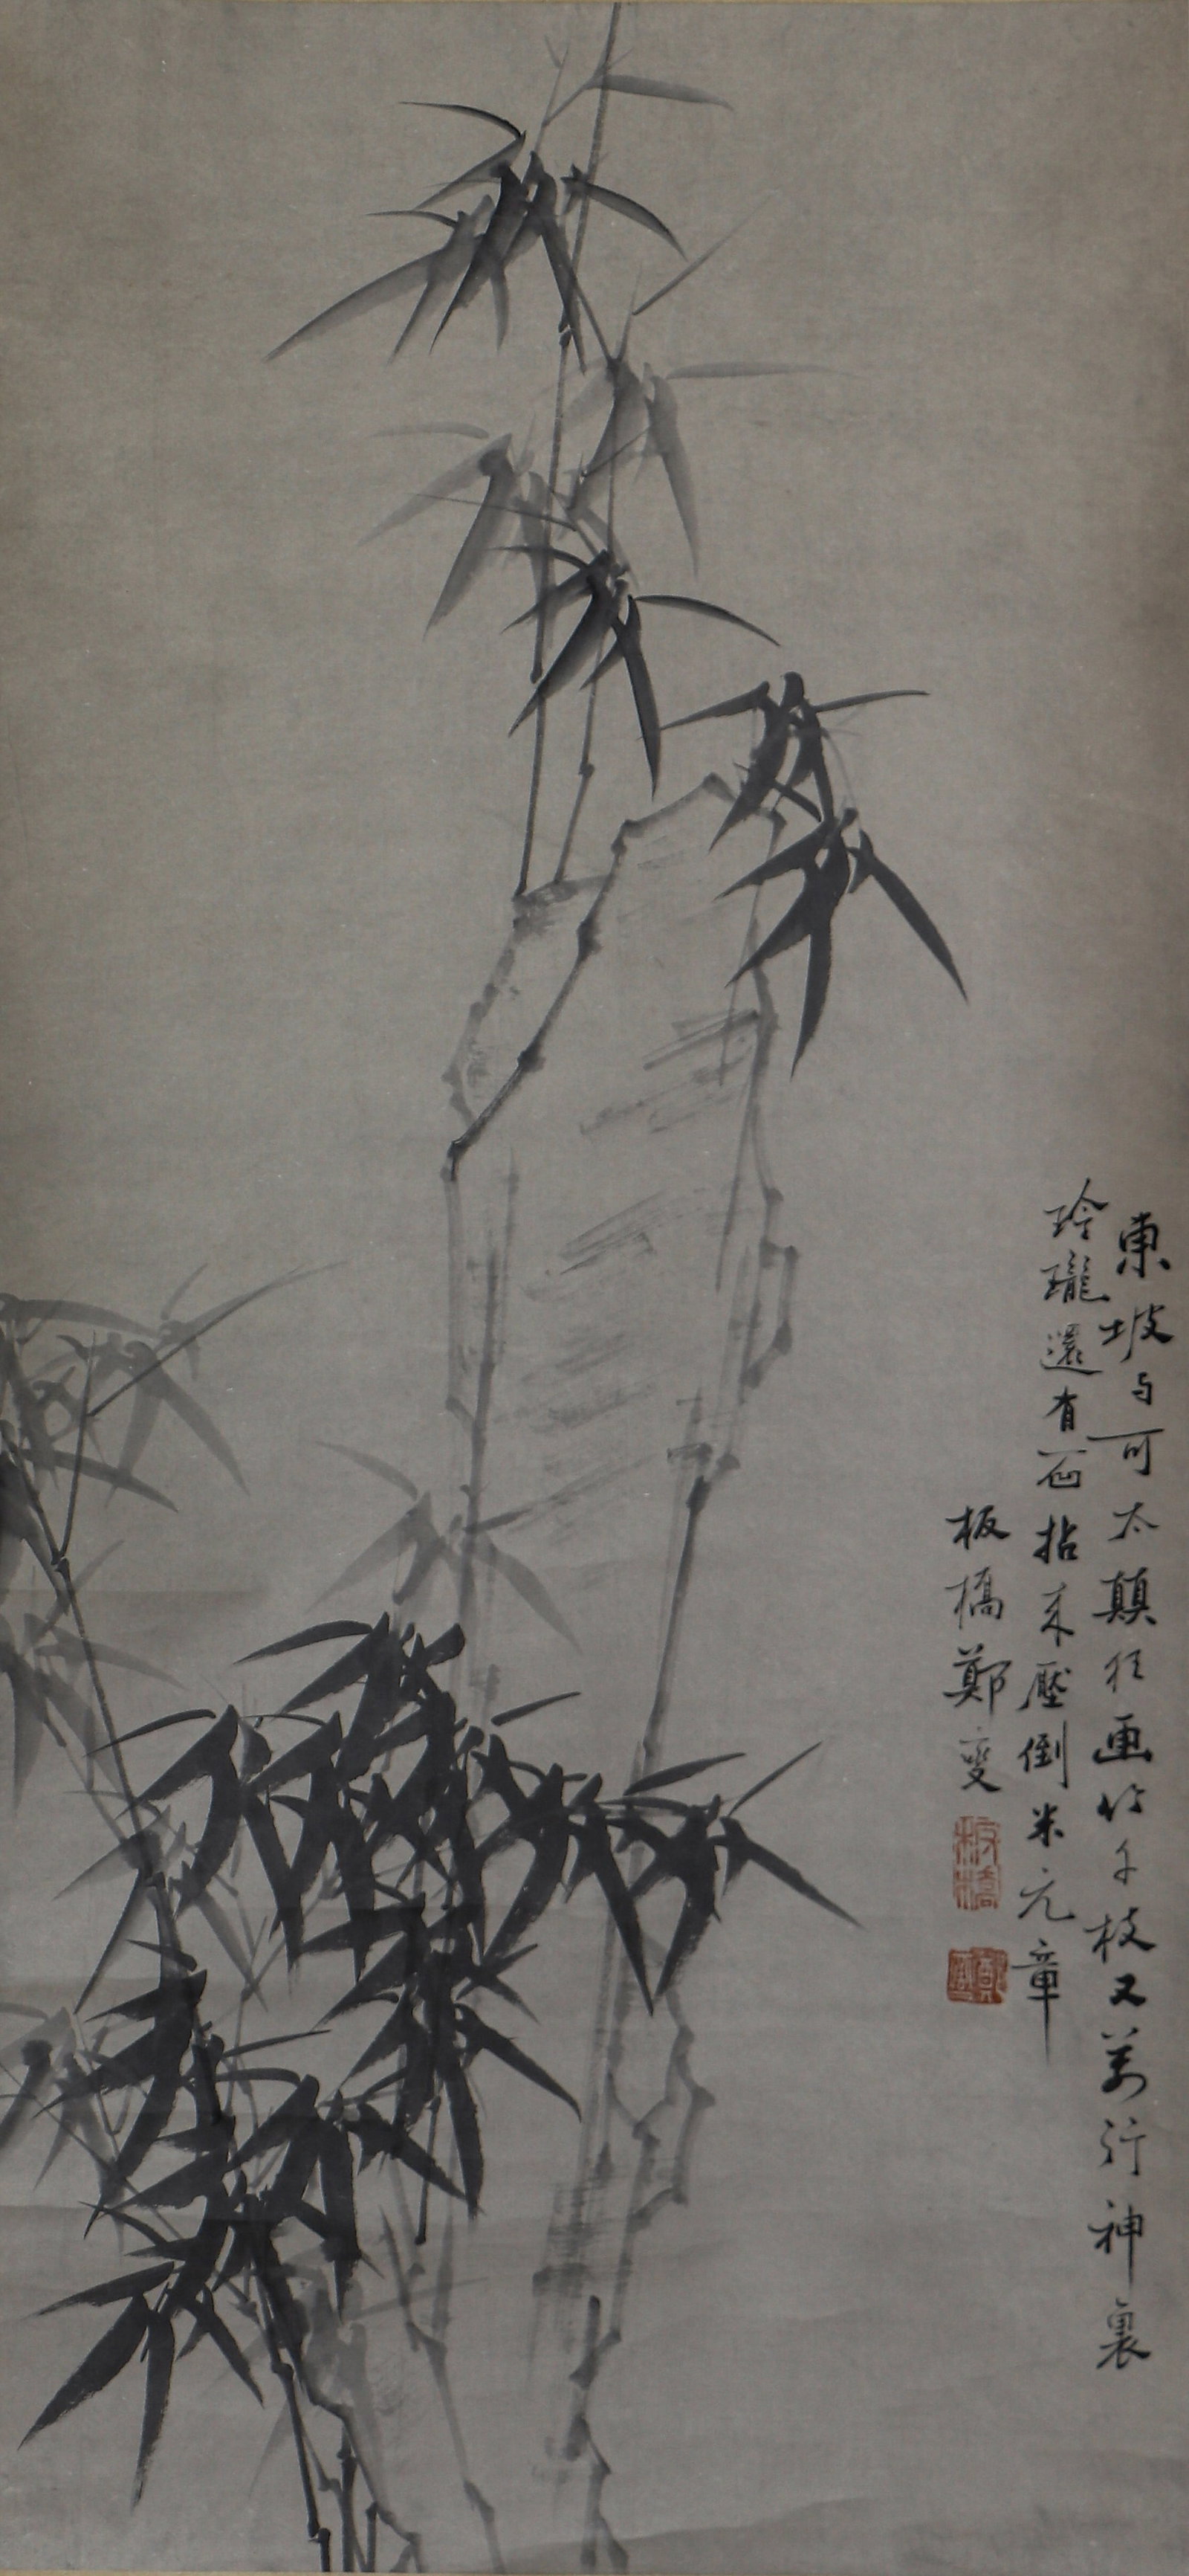 東坡与可太顛狂画竹千枝又萬行神裏
玲瓏還有石拈來壓倒米元章
板橋鄭燮
板橋
鄭燮